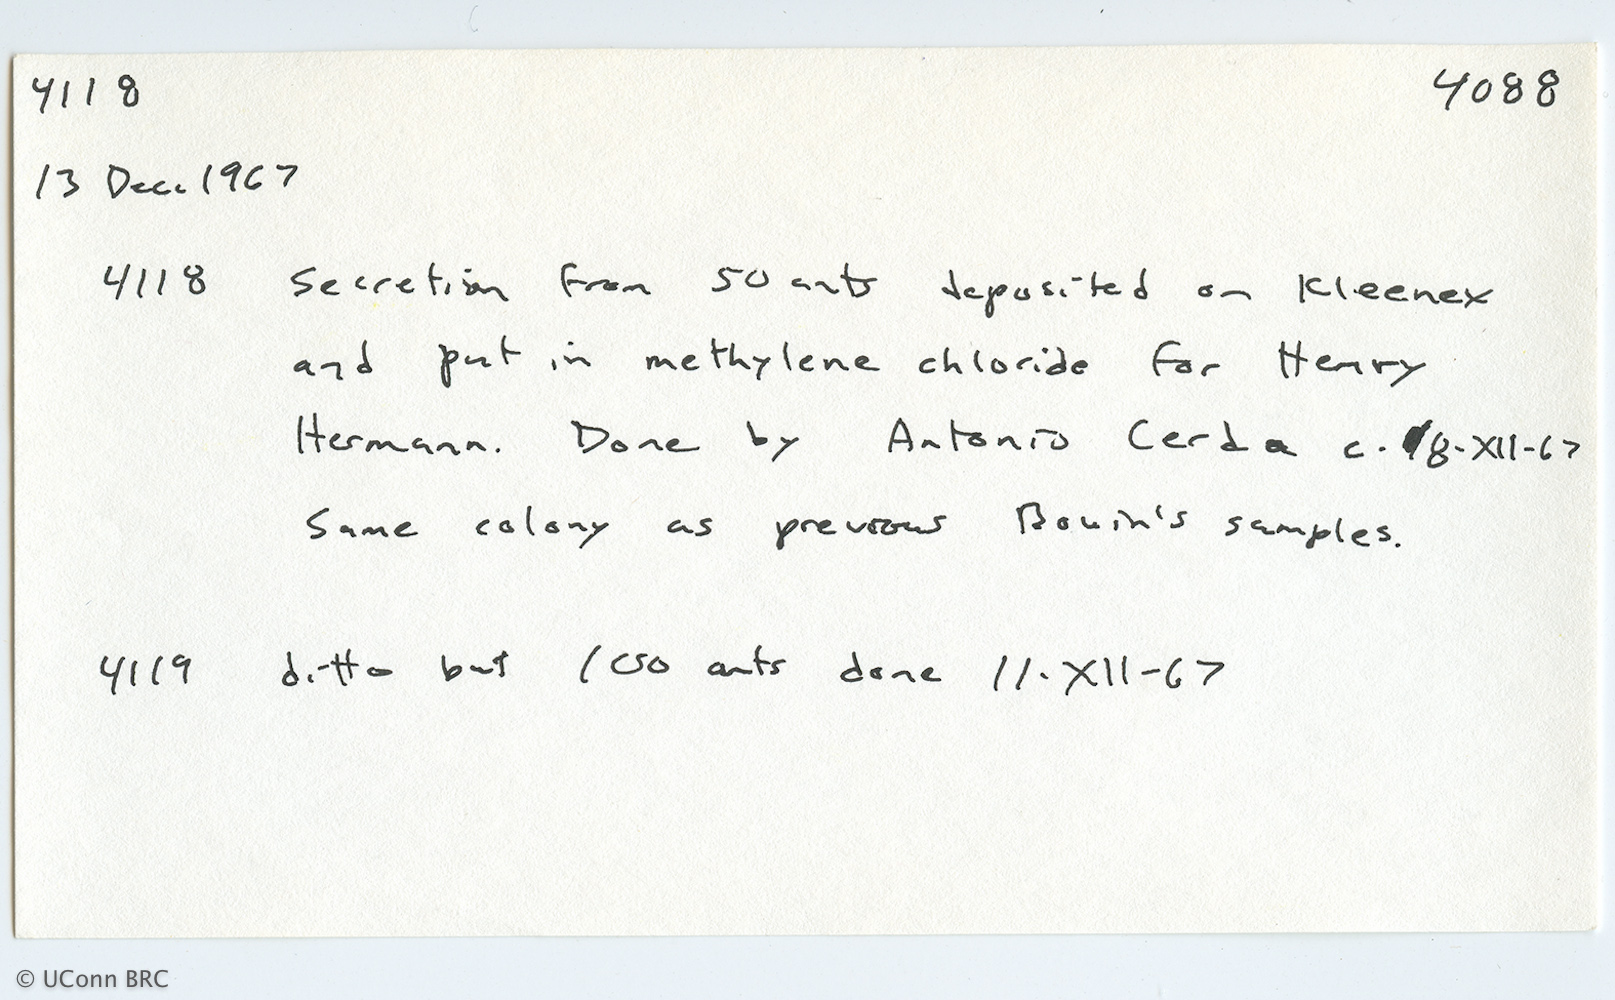 4118 4088
13 Dec. 1967
4118 Secretion from 50 ants deposited on Kleenex
and put in methylene chloride for Henry
Hermann. Done by Antonio Cerda c. 8-XII-67
Same colony as previous Bouin's samples.
4119 ditto but 100 ants done 11-XII-67
© UConn BRC